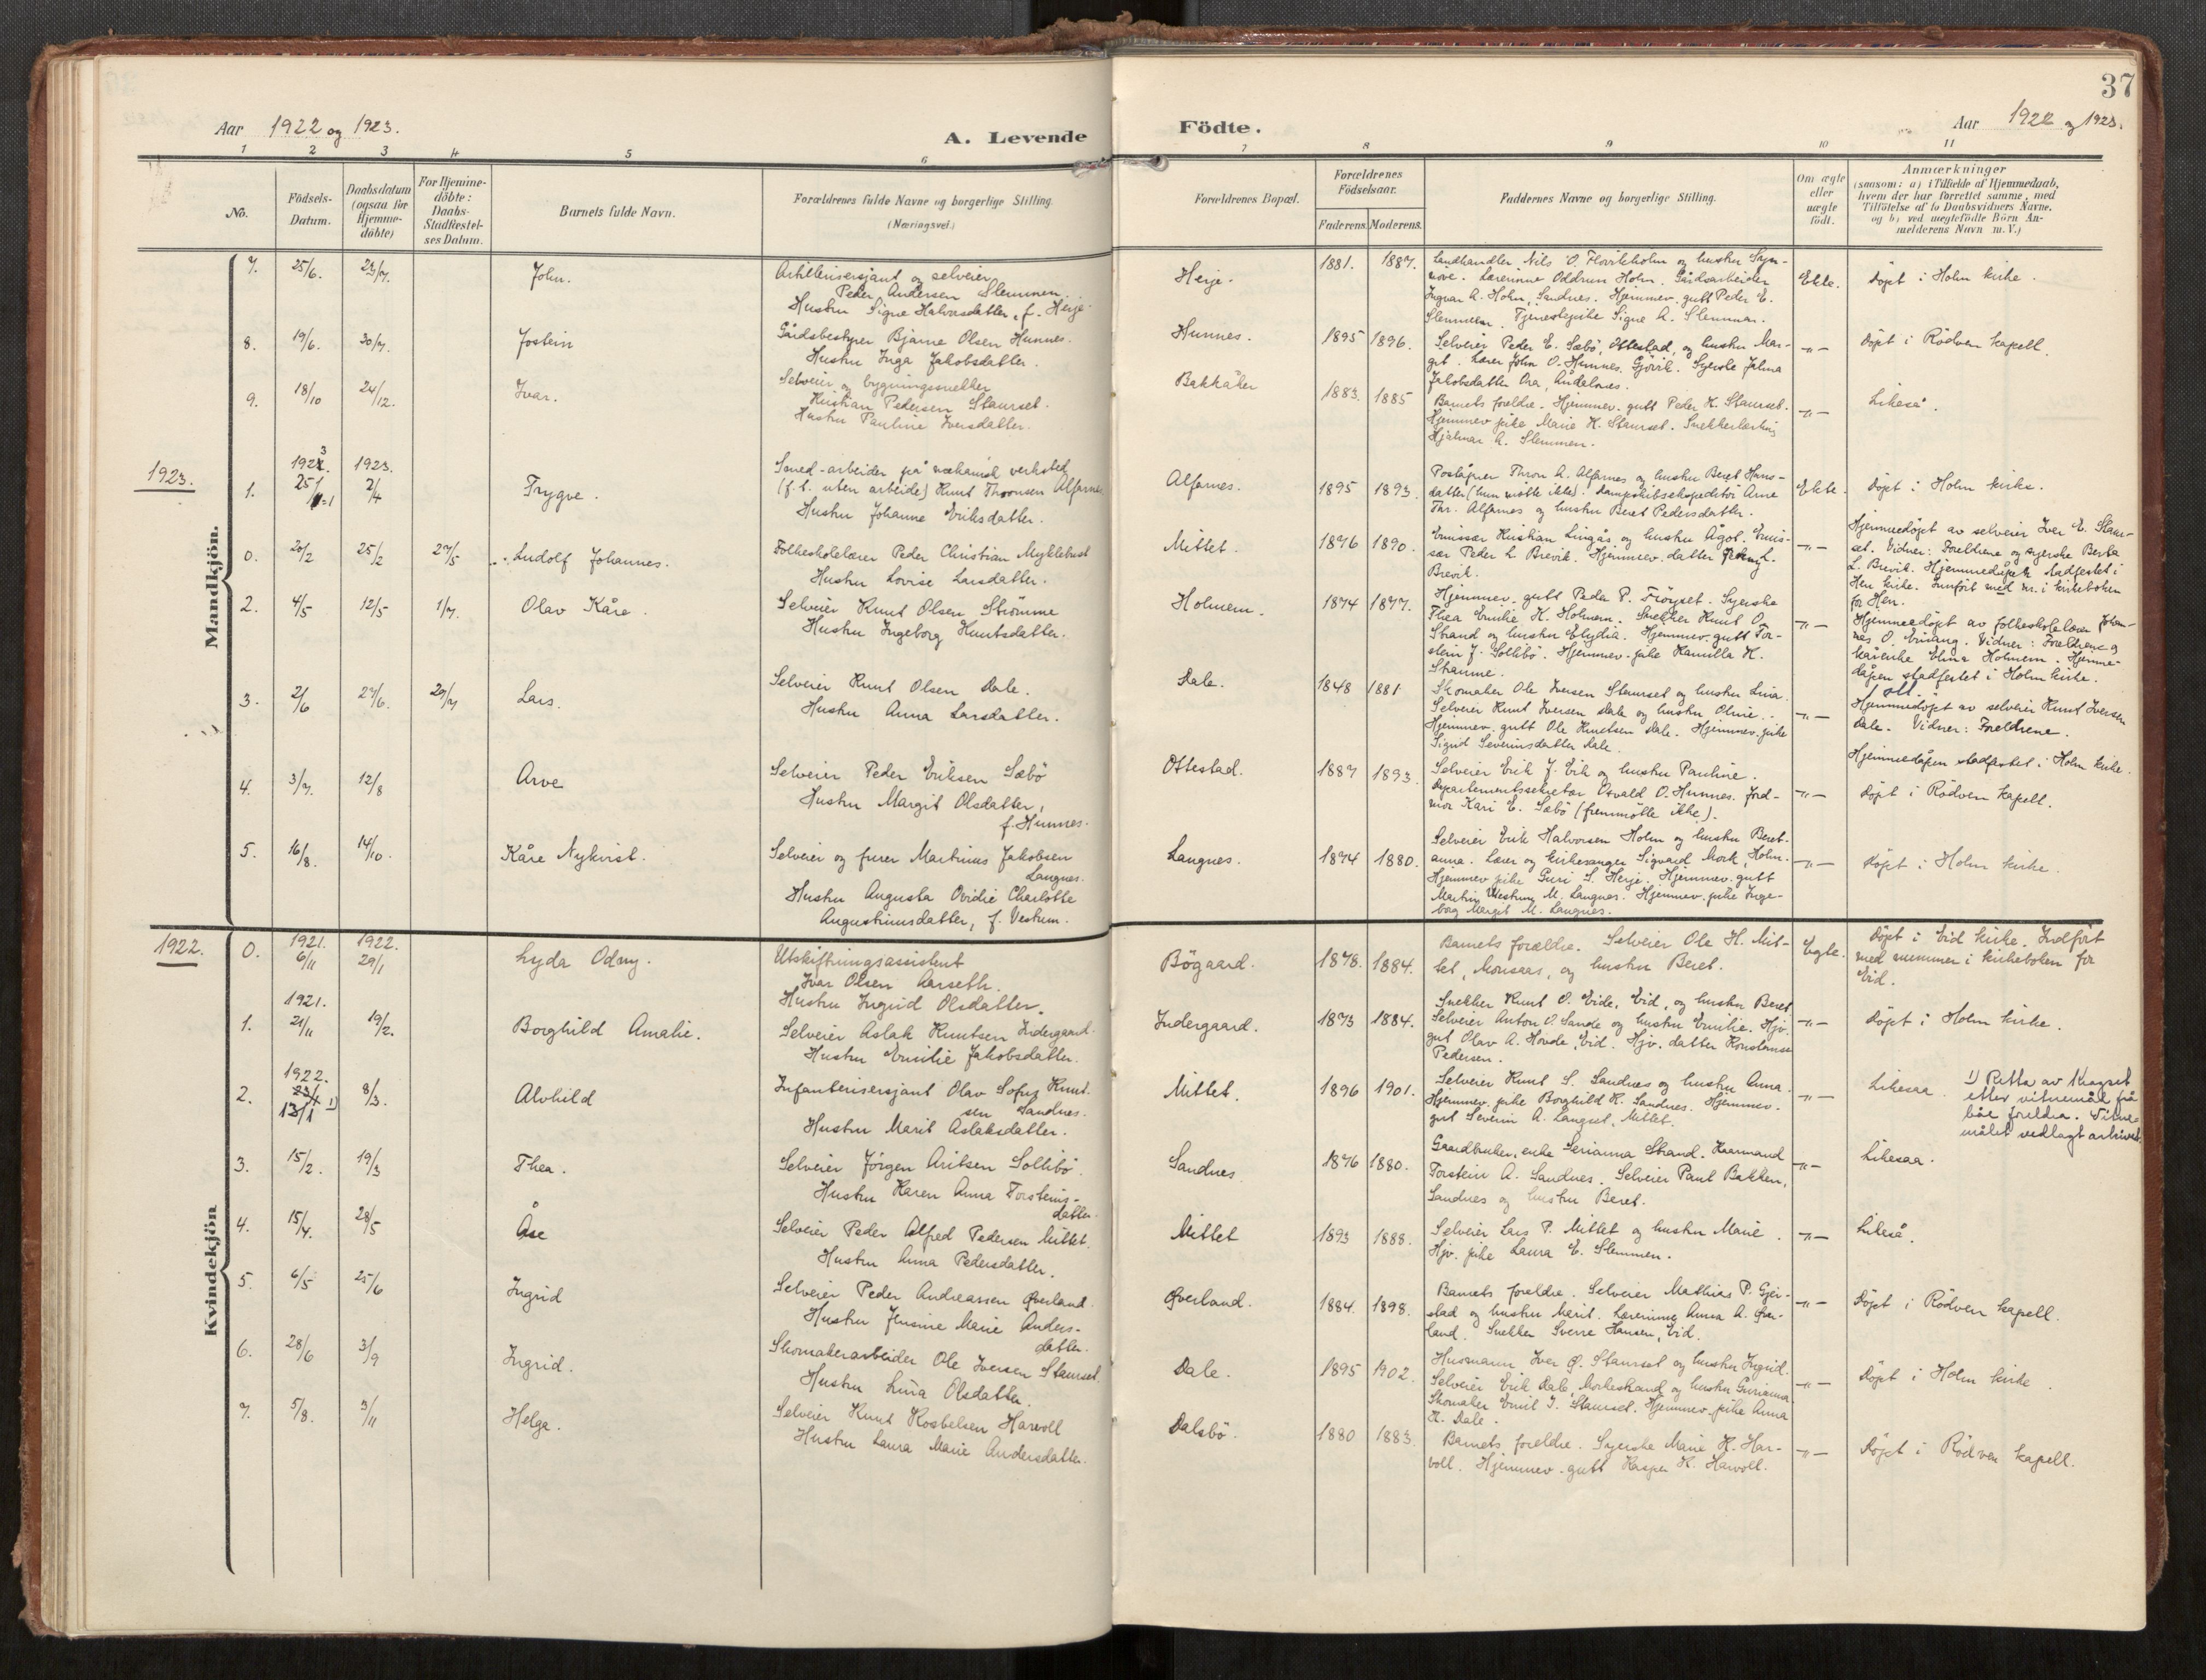 37
Aar 1922 og 1923.
A. Levende
Födte.
Aar 1922 og 1923.
1 2 3 4 5 6 7 8 9 10 11
No.
Födsels-
Datum.
Daabsdatum
(ogsaa for
Hjemme-
döbte)
For Hjemme-
döbte:
Daabs-
Stadfæstel-
ses Datum.
Barnets fulde Navn.
Forældrenes fulde Navne og borgerlige Stilling.
(Næringsvei.)
Forældrenes Bopæl.
Forældrenes
Födselsaar.
Faderens. Moderens.
Faddernes Navne og borgerlige Stilling.
Om ægte
eller
uægte
født.
Anmærkninger
(saasom: a) i Tilfælde af Hjemmedaab,
hvem der har forrettet samme, med
Tilföielse af to Daabsvidners Navne.
og b) ved uægtefödte Börn An-
melderens Navn m. V.)
Mandkjön.
7. 25/6. 23/7. John.
Artillerisersjant og selveier
Peder Andersen Slemmen.
Hustru Signe Halvorsdatter, f. Herje.
Herje. 1881. 1887.
Landhandler Nils O. Flovikholm og hustru Syn-
növe. Lærerinne Oddrun Holm. Gårdsarbeider
Ingvar A. Holm, Sandnes. Hjemmev. gutt Peder E.
Slemmen. Tjenestepike Signe A. Slemmen.
Ekte. Döpt i Holm kirke.
8. 19/6. 30/7. Jostein
Gårdsbestyrer Bjarne Olsen Hunnes.
Hustru Inga Jakobsdatter.
Hunnes. 1895 1896.
Selveier Peder E. Sæbö, Ottestad, og hustru Mar-
git. Lærer John O. Hunnes, Gjövik. Syerske Jalma
Jakobsdatter Ora, Åndalsnes.
-"- Döpt i Rödven kapell.
9. 18/10 24/12. Ivar.
Selveier og bygningssnekker
Kristian Pedersen Staurset.
Hustru Pauline Iversdatter.
Bakkåker 1883. 1885
Barnets foreldre. Hjemmev. gutt Peder K. Staurset.
Hjemmev. pike Marie K. Staurset. Snekkerlærling
Hjalmar A. Slemmen.
-"- Likeså.
1923.
1923. 1923.
1. 25/1 2/4 Trygve.
Smed-arbeider på mekanisk verksted
(f. t. uten arbeide) Knut Thronsen Alfarnes
Hustru Johanne Eriksdatter.
Alfarnes. 1895 1893.
Poståpner Thron A. Alfarnes og hustru Beret Hans-
datter (hun møtte ikke). Dampskibsekspeditör Arne
Thr. Alfarnes og hustru Beret Pedersdatter.
Ekte. Döpt i Holm kirke.
0. 20/2 25/2 27/5 Ludolf Johannes.
Folkeskolelærer Peder Christian Myklebust
Hustru Lovise Larsdatter.
Mittet. 1876 1890.
Emissær Kristian Lingås og hustru Ågot. Emis-
sær Peder L. Brevik. Hjemmev. datter L.
Brevik.
-"- Hjemmedöpt av selveier Iver E. Staur-
set. Vidner: Foreldrene og syerske Berta
L. Brevik. Hjemmedåpen stadfestet i
Hen kirke. Innfört med nr. i kirkeboken
for Hen.
2. 4/5 12/5 1/7. Olav Kåre.
Selveier Knut Olsen Strömme
Hustru Ingeborg Knutsdatter.
Holmem. 1874 1877.
Hjemmev. gutt Peder P. Fröyset. Syerske
Thea Emilie K. Holmem. Snekker Knut O.
Strand og hustru Elydia. Hjemmev. gutt Tor-
stein J. Sollibö. Hjemmev. pike Kamilla K.
Strømme.
-"- Hjemmedöpt av folkeskolelærer Johan-
nes O. Vidner: Foreldrene og
Elina Holmem. Hjemme-
dåpen stadfestet i Holm kirke.
3. 2/6 27/6. 29/7 Lars.
Selveier Knut Olsen Dale.
Hustru Anna Larsdatter.
Dale. 1878 1881
Skomaker Ole Iversen Staurset og hustru Lina.
Selveier Knut Iversen Dale og hustru Oline.
Hjemmev. gutt Ole Knutsen Dale. Hjemmev. pike
Sigrid Severinsdatter Dale.
-"- Hjemmedöpt av selveier Knut Iversen
Dale. Vidner: Foreldrene.
Hjemmedåpen stadfestet i Holm kirke.
4. 3/7. 12/8 Arve
Selveier Peder Eriksen Sæbö
Hustru Margit Olsdatter,
f. Hunnes.
Ottestad. 1887 1893.
Selveier Erik J. Eik og hustru Pauline.
Departementssekretær Osvald O. Hunnes. Jord-
mor Kari E. Sæbö (fremmötte ikke).
-"- Döpt i Rödven kapell.
5. 16/8. 14/10. Kåre Nykvist.
Selveier og furer Martinus Jakobsen
Langnes.
Hustru Augusta Ovidie Charlotte
Augustinusdatter, f. Vestrum.
Langnes. 1874 1880.
Selveier Erik Halvorsen Holm og hustru Beret-
anna. Lærer og kirkesanger Sigvard Mork, Holm.
Hjemmev. pike Guri S. Herje. Hjemmev. gutt
Martin Vestrum M. Langnes. Hjemmev. pike Inge-
borg Margit M. Langnes.
-"- Döpt i Holm kirke.
1922.
Kvindekjön
1921. 1922.
0. 6/11 29/1 Lyda Odny.
Utskiftningsassistent
Ivar Olsen Aarseth.
Hustru Ingrid Olsdatter.
Bögaard. 1878. 1884.
Barnets foreldre. Selveier Ole H. Mit-
tet, Monsaas, og hustru Beret.
Egte. Döpt i Eid kirke. Indfört
med nummer i kirkeboken for
Eid.
1921.
1. 21/11 19/2. Borghild Amalie.
Selveier Aslak Knutsen Indergaard.
Hustru Emilie Jakobsdatter.
Indergaard. 1873 1884.
Snekker Knut O. Eide, Eid, og hustru Beret
Selveier Anton O. Sande og hustru Emilie. Hjv.
gut Olav A. Hovde, Eid. Hjv. datter Konstanse
Pedersen.
-"- Döpt i Holm kirke.
1922.
2. 23/1 13/1 1) 8/3. Alvhild
Infanterisersjant Olav Sofus Knut-
sen Sandnes.
Hustru Marit Aslaksdatter.
Mittet. 1896 1901.
Selveier Knut S. Sandnes og hustru Anna.
Hjemmev. pike Borghild K. Sandnes. Hjemmev.
gut Severin A. Langset, Mittet.
-"- Likesaa. 1) Retta av
etter vitnemål frå
båe foreldra. Vitne-
målet vedlagt arkivet
3. 15/2. 19/3 Thea.
Selveier Jörgen Aritsen Sollibö.
Hustru Karen Anna Torsteins-
datter.
Sandnes 1876 1880.
Gaardbruker, enke Serianna Strand. Haarmand
Torstein A. Sandnes. Selveier Paul Bakken,
Sandnes og hustru Beret.
-"- Likesaa.
4. 15/4. 28/5 Åse
Selveier Peder Alfred Pedersen Mittet.
Hustru Anna Pedersdatter.
Mittet 1893 1888.
Selveier Lars P. Mittet og hustru Marie.
Hjv. pike Laura E. Slemmen.
-"- Likeså.
5. 6/5 25/6 Ingrid
Selveier Peder Andreassen Øverland.
Hustru Jensine Marie Anders-
datter.
Øverland. 1884. 1898.
Barnets foreldre. Selveier Mathias P. Gjer-
stad og hustru Marit. Lærerinne Anna A. Øver-
land. Snekker Sverre Hansen, Eid.
-"- Döpt i Rödven kapell.
6. 28/6 3/9 Ingrid.
Skomakerarbeider Ole Iversen Staurset.
Hustru Lina Olsdatter
Dale. 1895 1902.
Husmann Iver Ø. Staurset og hustru Ingrid.
Selveier Erik Dale, Morkestrand og hustru Gurianna.
Skomaker Emil I. Staurset. Hjemmev. pike Anna
K. Dale.
-"- Döpt i Holm kirke.
7. 5/8. 5/11 Helga.
Selveier Knut Kostelsen Harvoll
Hustru Laura Marie Andersdatter.
Dalsbö. 1880 1883.
Barnets foreldre. Syerske Marie K. Har-
voll. Hjemmev. gutt Kasper K. Harvoll.
-"- Döpt i Rödven kapell.